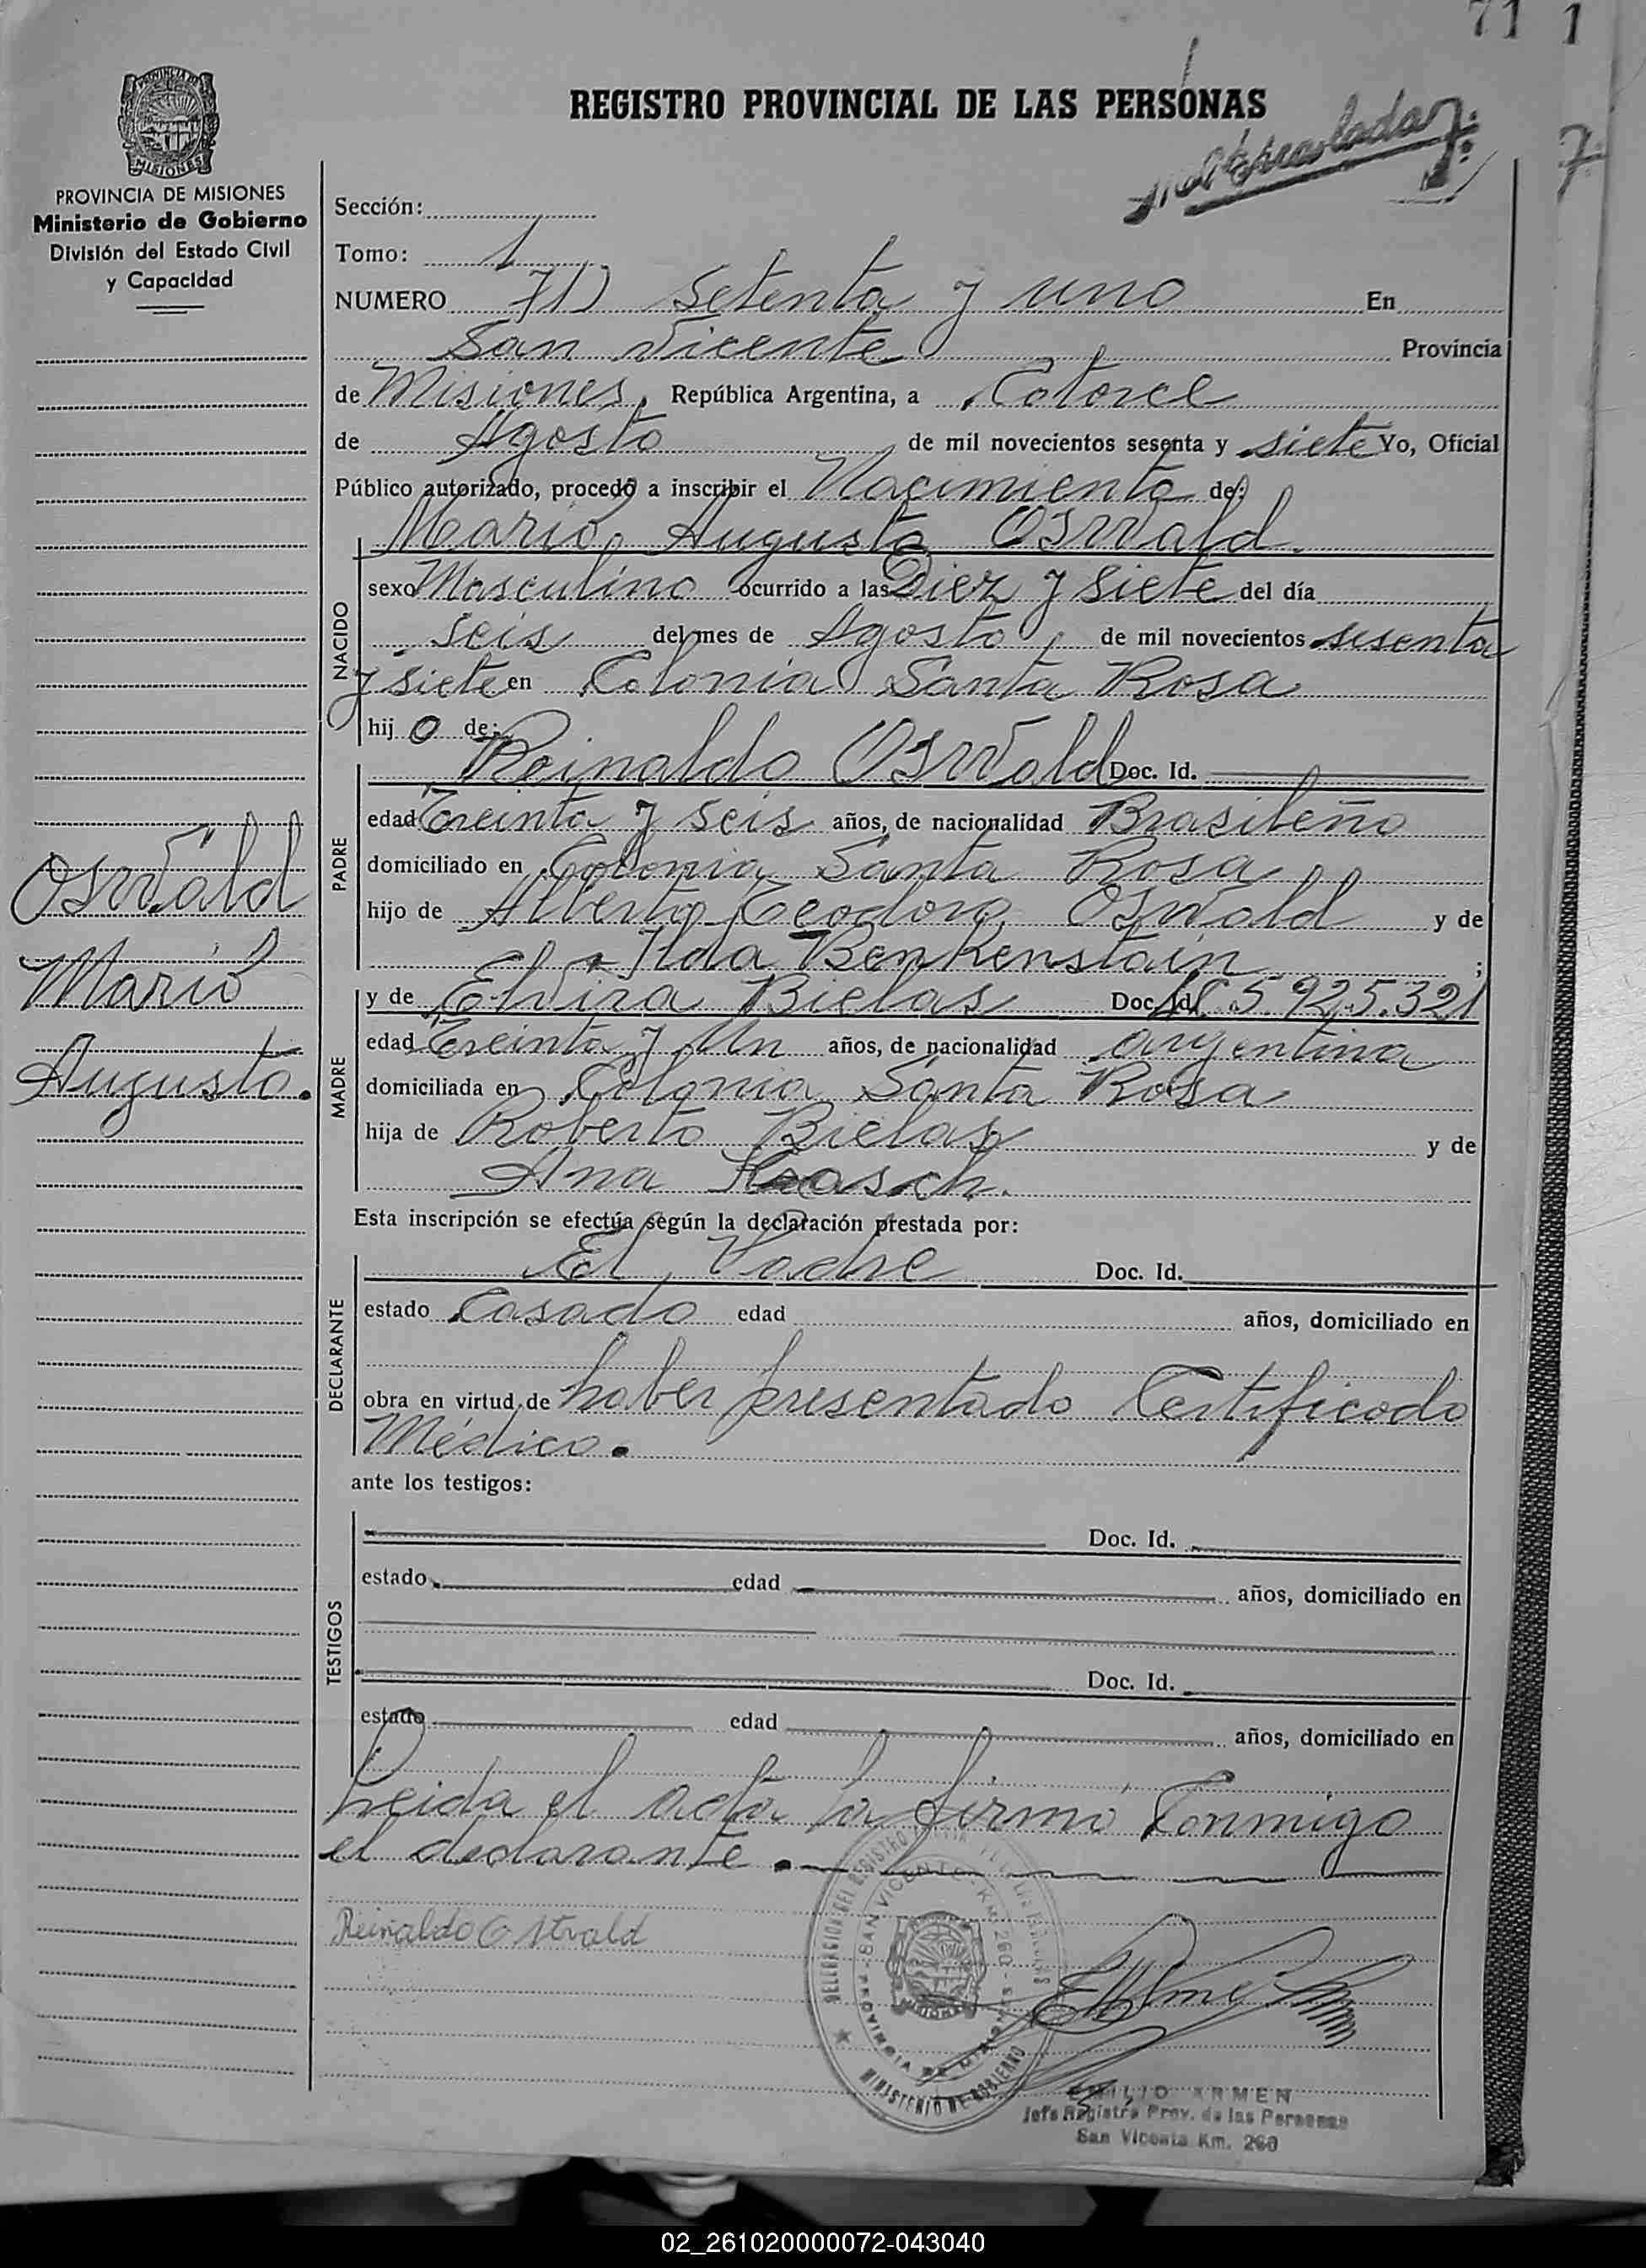 71 1
REGISTRO PROVINCIAL DE LAS PERSONAS
PROVINCIA DE MISIONES
Ministerio de Gobierno
División del Estado Civil
y Capacidad
Sección:
Tomo: 1
NUMERO 71) Setenta y uno En
San Vicente Provincia
de Misiones, República Argentina, a Catorce
de Agosto de mil novecientos sesenta y siete Yo, Oficial
Público autorizado, procedo a inscribir el Nacimiento de:
Mario Augusto Oswald.
NACIDO
sexo Masculino ocurrido a las Diez y Siete del día
seis del mes de Agosto de mil novecientos sesenta
y siete en Colonia Santa Rosa
hijo de:
PADRE
Reinaldo Oswald Doc. Id.
edad Treinta y seis años, de nacionalidad Brasileño
domiciliado en Colonia Santa Rosa
hijo de Alberto Teodoro Oswald y de
Ilda Benkenstain ;
MADRE
y de Elvira Bielas Doc. Id. 5.925.321
edad Treinta y Un años, de nacionalidad argentina
domiciliada en Colonia Santa Rosa
hija de Roberto Bielas y de
Ana
Esta inscripción se efectúa según la declaración prestada por:
DECLARANTE
El Padre Doc. Id.
estado Casado edad años, domiciliado en
obra en virtud de haber presentado Certificado
Médico.
ante los testigos:
TESTIGOS
Doc. Id.
estado edad años, domiciliado en
Doc. Id.
estado edad años, domiciliado en
Leida el acta la firmó Conmigo
el declarante.
Oswald
Mario
Augusto.
Reinaldo Ostvald
DELEGACION DEL REGISTRO
SAN VICENTE - KM. 260
PROVINCIA DE MISIONES
MINISTERIO DE GOBIERNO
EMILIO ARMEN
Jefe Registro Prov. de las Personas
San Vicente Km. 260
02_261020000072-043040